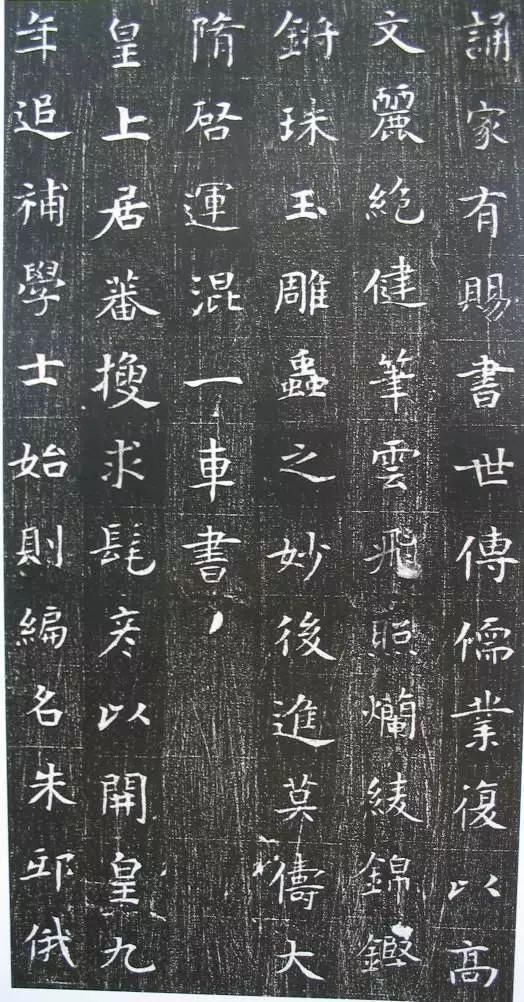 誦家有賜書世傳儒業復以高
文麗絶健筆雲飛照爛綾錦鏗
鏘珠玉雕蟲之妙後進莫儔大
隋啓運混一車書
皇上居蕃搜求髦彦以開皇九
年追補學士始則編名朱邸俄